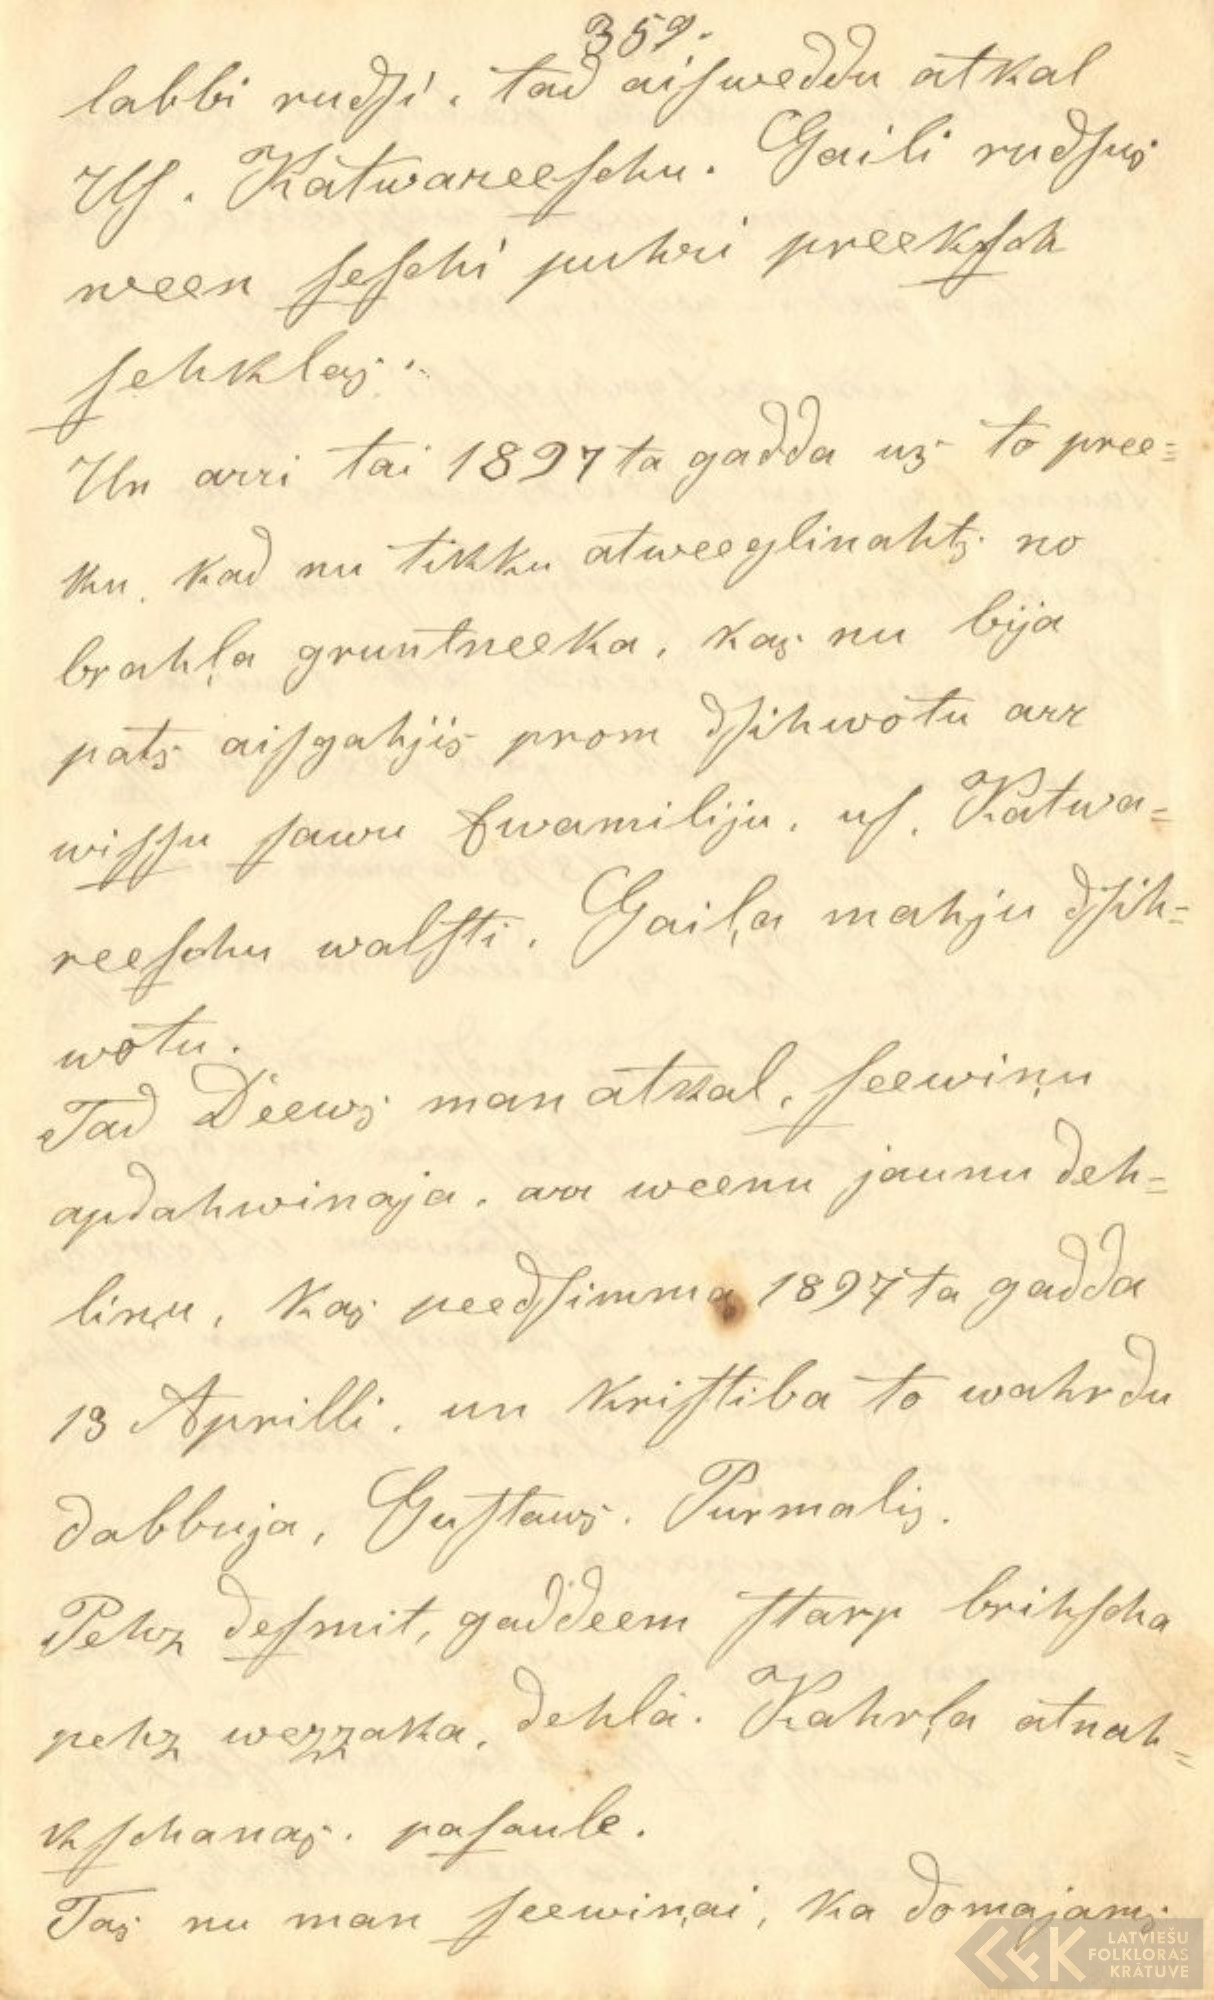 359.
labbi rudſi, tad aiſweddu atkal
Uſ. Katwareeſchu. Gaili rudſus
ween ſeſchi puhri preekſch
ſehklas.
Un arri tai 1897ta gadda us to pree=
ku, kad nu tikku atweeglinahts no
brahļa gruntneeka, kas nu bija
pats aiſgahjis prom dſihwotu arr
wiſſu ſawu fwamiliju, uſ. Katwa=
reeſchu walſti. Gaiļa mahju dſih=
wotu.
Tad Deews man atkal, ſeewiņu
apdahwinaja, arr weenu jaunu deh=
liņu, kas peedſimma 1897ta gadda
13 Aprilli, un kriſtiba to wahrdu
dabbuja, Guſtaws. Purmalis.
Pehz deſmit, gaddeem ſtarp brihſcha
pehz wezzaka, dehla. Kahrļa atnah=
kſchanas. paſaule.
Tas nu man ſeewiņai, ka domajams
LATVIEŠU
FOLKLORAS
KRĀTUVE